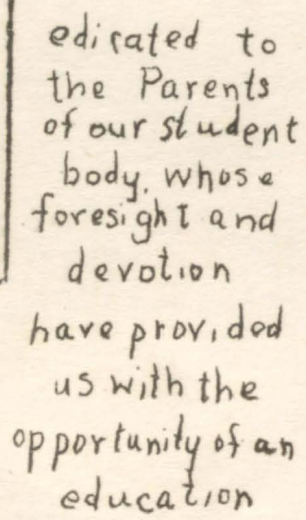 edicated to
the Parents
of our student
body, whose
foresight and
devotion
have provided
us with the
opportunity of an
education